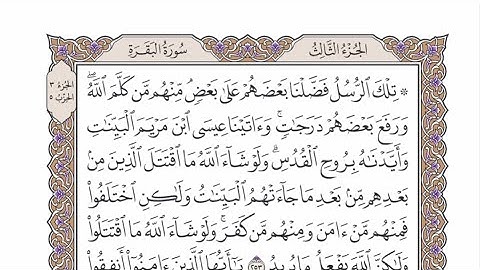 الجُزْءُ الثَّالِثُ
سُورَةُ البَقَرَةِ
الجزء ٣
الحزب ٥
۞ تِلْكَ ٱلرُّسُلُ فَضَّلْنَا بَعْضَهُمْ عَلَىٰ بَعْضٍۘ مِّنْهُم مَّن كَلَّمَ ٱللَّهُۖ
وَرَفَعَ بَعْضَهُمْ دَرَجَٰتٍۚ وَءَاتَيْنَا عِيسَى ٱبْنَ مَرْيَمَ ٱلْبَيِّنَٰتِ
وَأَيَّدْنَٰهُ بِرُوحِ ٱلْقُدُسِۗ وَلَوْ شَآءَ ٱللَّهُ مَا ٱقْتَتَلَ ٱلَّذِينَ مِنۢ
بَعْدِهِم مِّنۢ بَعْدِ مَا جَآءَتْهُمُ ٱلْبَيِّنَٰتُ وَلَٰكِنِ ٱخْتَلَفُوا۟
فَمِنْهُم مَّنْ ءَامَنَ وَمِنْهُم مَّن كَفَرَۚ وَلَوْ شَآءَ ٱللَّهُ مَا ٱقْتَتَلُوا۟
وَلَٰكِنَّ ٱللَّهَ يَفْعَلُ مَا يُرِيدُ ٢٥٣ يَٰٓأَيُّهَا ٱلَّذِينَ ءَامَنُوٓا۟ أَنفِقُوا۟